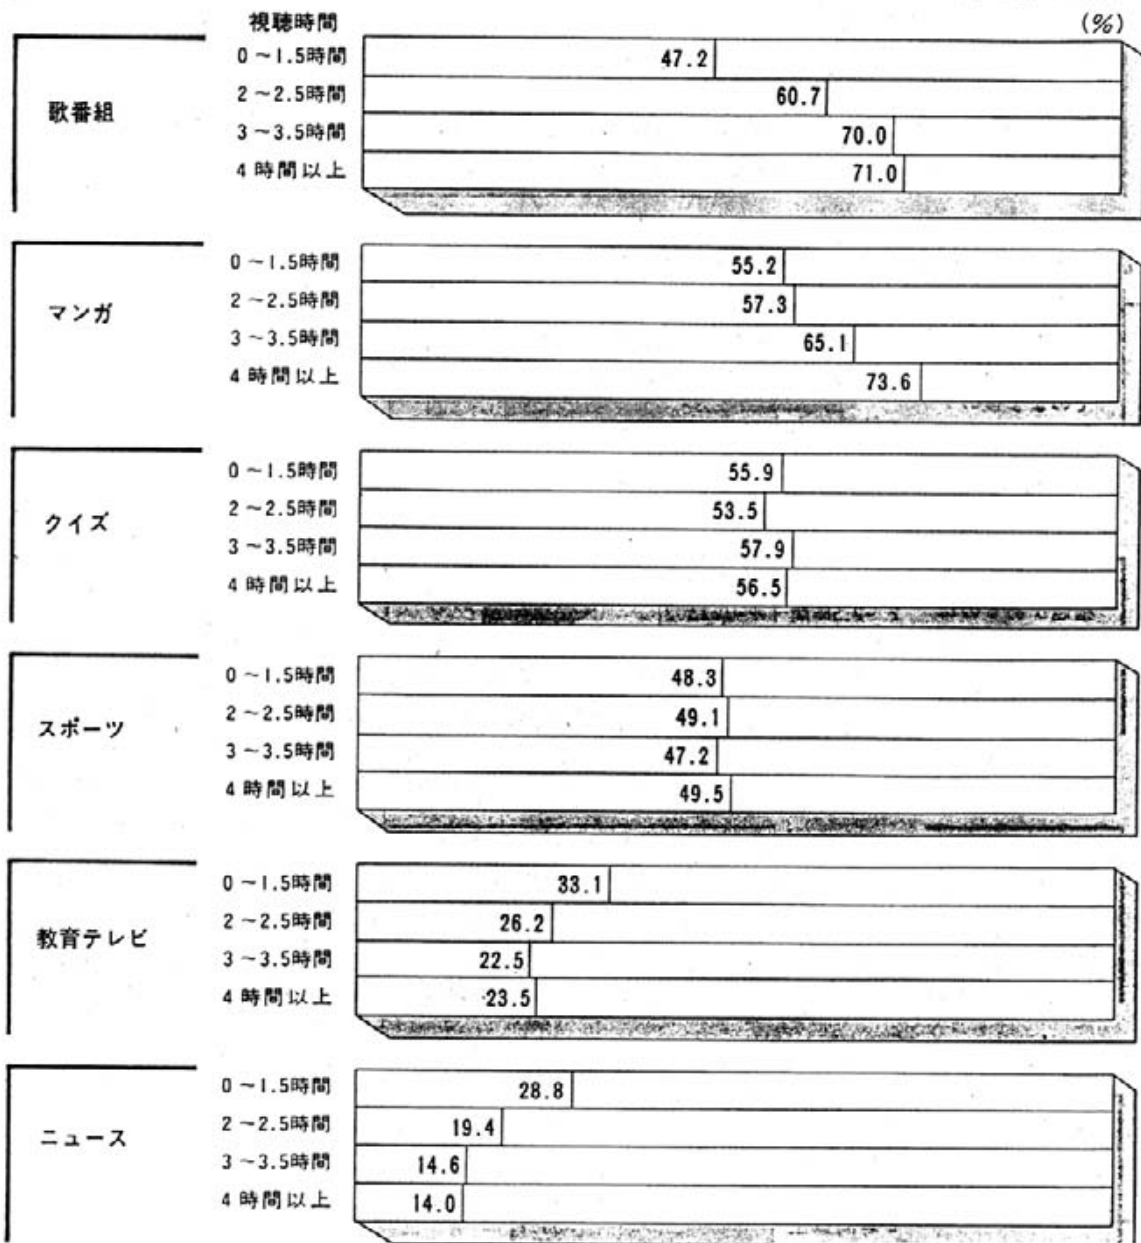 視聴時間 (%)
歌番組
0～1.5時間 47.2
2～2.5時間 60.7
3～3.5時間 70.0
4時間以上 71.0
マンガ
0～1.5時間 55.2
2～2.5時間 57.3
3～3.5時間 65.1
4時間以上 73.6
クイズ
0～1.5時間 55.9
2～2.5時間 53.5
3～3.5時間 57.9
4時間以上 56.5
スポーツ
0～1.5時間 48.3
2～2.5時間 49.1
3～3.5時間 47.2
4時間以上 49.5
教育テレビ
0～1.5時間 33.1
2～2.5時間 26.2
3～3.5時間 22.5
4時間以上 23.5
ニュース
0～1.5時間 28.8
2～2.5時間 19.4
3～3.5時間 14.6
4時間以上 14.0